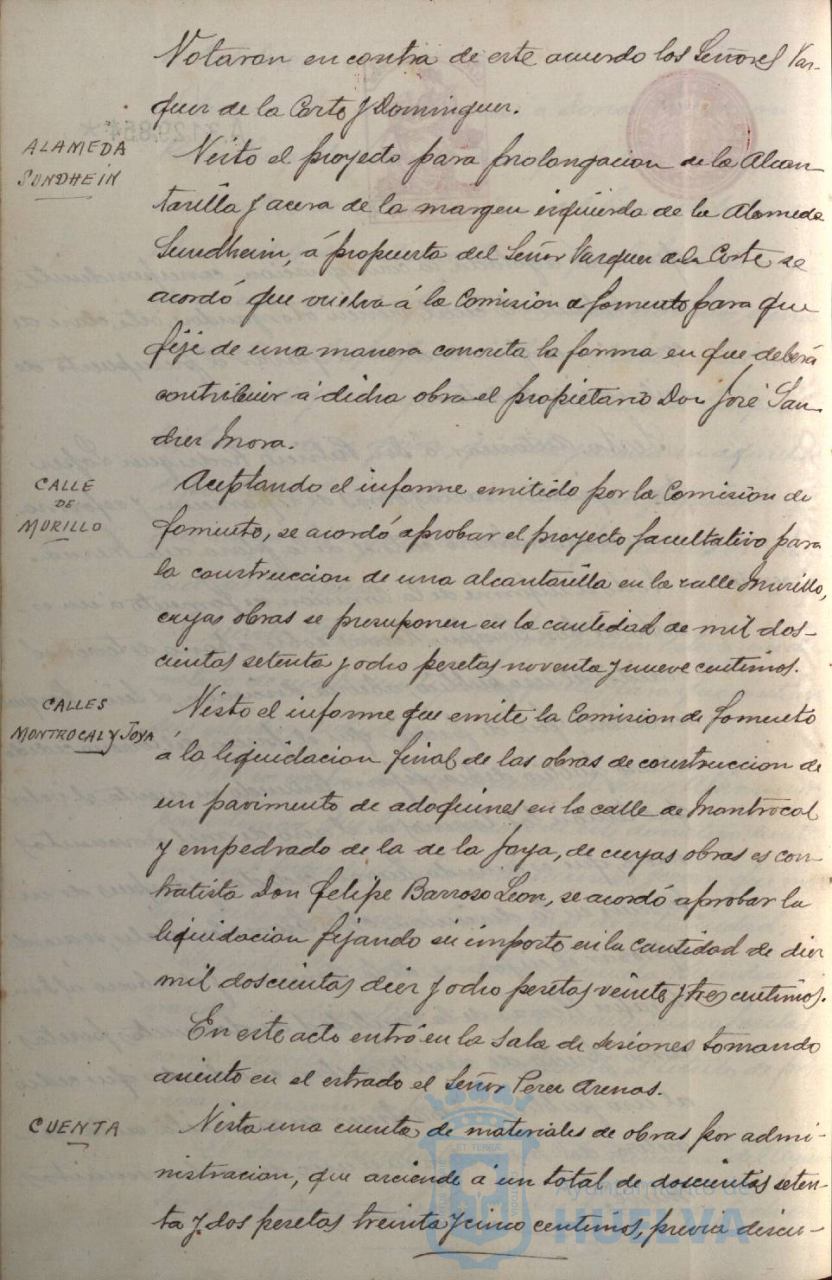 Votaron en contra de este acuerdo los Señores Vaz-
quez de la Corte y Dominguez.
ALAMEDA
SUNDHEIN
Visto el proyecto para prolongacion de la Alcan-
tarilla y acera de la margen izquierda de la Alameda
Sundheim, á propuesta del Señor Vazquez de la Corte se
acordó que vuelva á la Comision de fomento para que
fije de una manera concreta la forma en que deberá
contribuir á dicha obra el propietario Don José San-
chez Mora.
CALLE
DE
MURILLO
Aceptando el informe emitido por la Comision de
fomento, se acordó aprobar el proyecto facultativo para
la construccion de una alcantarilla en la calle Murillo,
cuyas obras se presuponen en la cantidad de mil dos-
cientas setenta y ocho pesetas noventa y nueve centimos.
CALLES
MONTROCAL y JOYA
Visto el informe que emite la Comision de fomento
á la liquidacion final de las obras de construccion de
un pavimento de adoquines en la calle de Montrocal
y empedrado de la de la Joya, de cuyas obras es con-
tratista Don Felipe Barroso Leon, se acordó aprobar la
liquidacion fijando su importe en la cantidad de diez
mil doscientas diez y ocho pesetas veinte y tres centimos.
En este acto entró en la Sala de Sesiones tomando
asiento en el estrado el Señor Perez Arenas.
CUENTA
Vista una cuenta de materiales de obras por admi-
nistracion, que asciende á un total de doscientas seten-
ta y dos pesetas treinta y cinco centimos, previa discu-
Ayuntamiento de
HUELVA